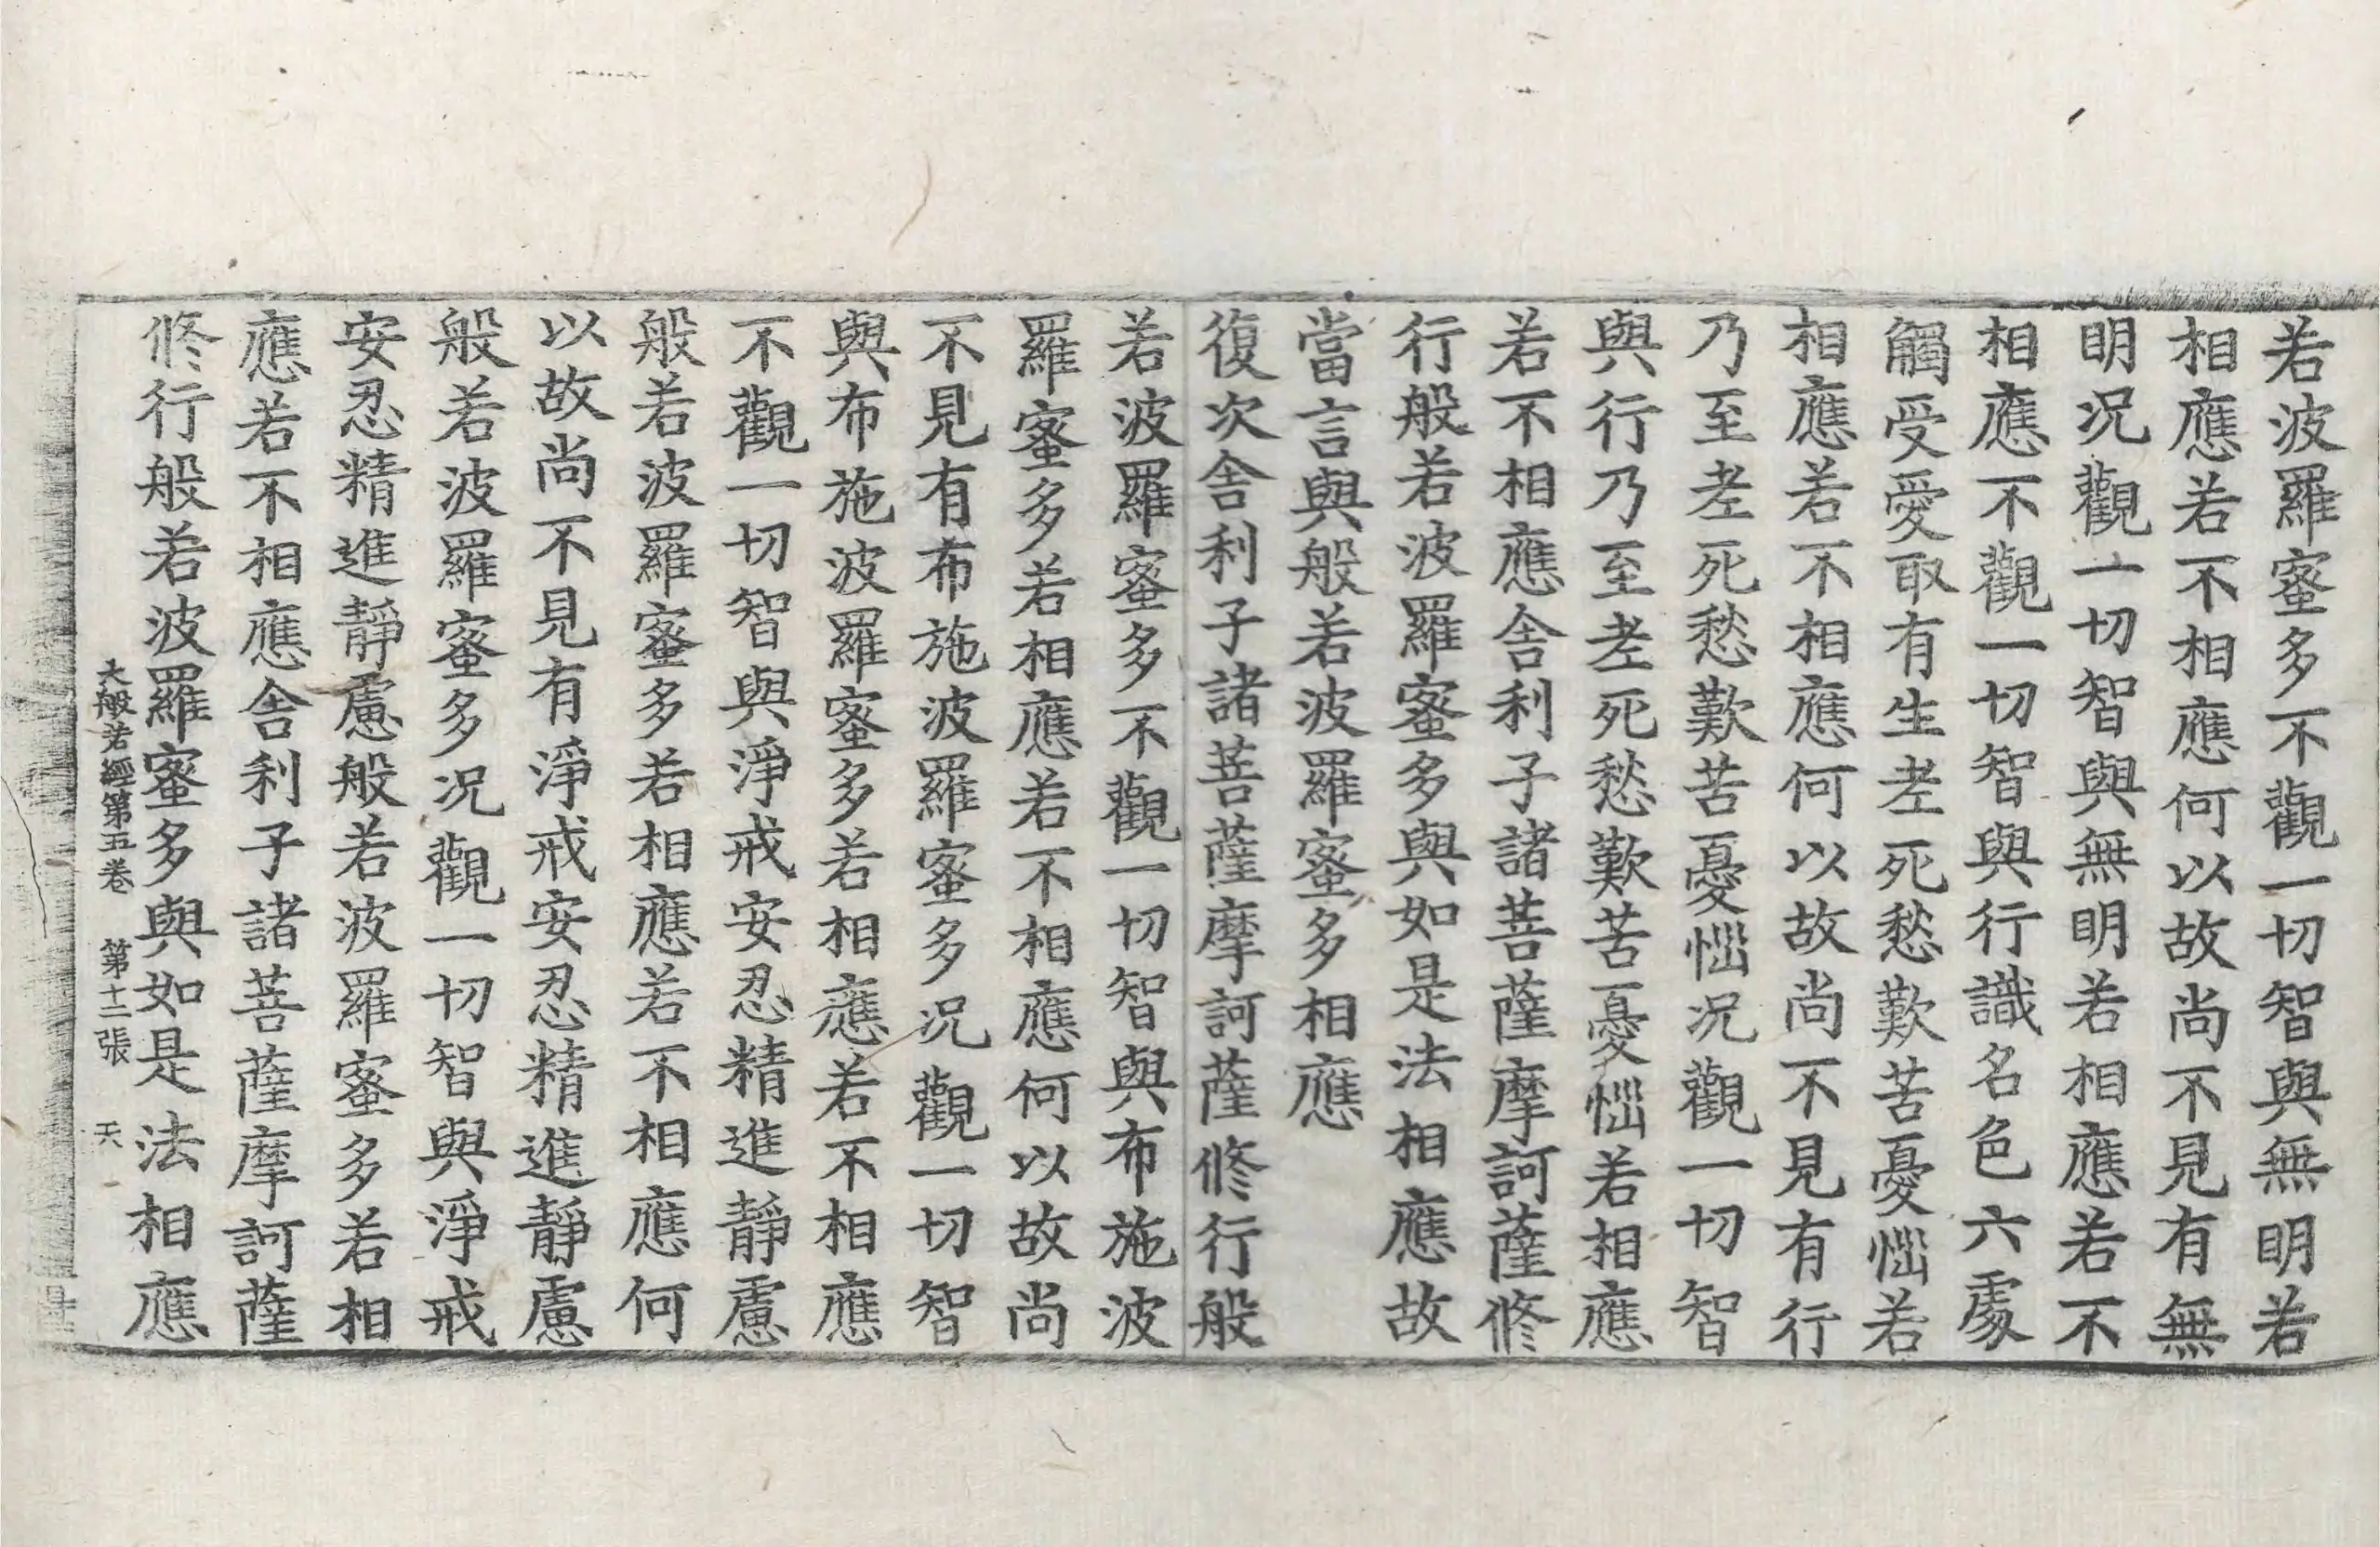 若波羅蜜多不觀一切智與無明若
相應若不相應何以故尚不見有無
明况觀一切智與無明若相應若不
相應不觀一切智與行識名色六處
觸受愛取有生老死愁歎苦憂惱若
相應若不相應何以故尚不見有行
乃至老死愁歎苦憂惱况觀一切智
與行乃至老死愁歎苦憂惱若相應
若不相應舍利子諸菩薩摩訶薩修
行般若波羅蜜多與如是法相應故
當言與般若波羅蜜多相應
復次舍利子諸菩薩摩訶薩修行般
若波羅蜜多不觀一切智與布施波
羅蜜多若相應若不相應何以故尚
不見有布施波羅蜜多况觀一切智
與布施波羅蜜多若相應若不相應
不觀一切智與淨戒安忍精進靜慮
般若波羅蜜多若相應若不相應何
以故尚不見有淨戒安忍精進靜慮
般若波羅蜜多况觀一切智與淨戒
安忍精進靜慮般若波羅蜜多若相
應若不相應舍利子諸菩薩摩訶薩
修行般若波羅蜜多與如是法相應
大般若經第五卷 第十二張 天